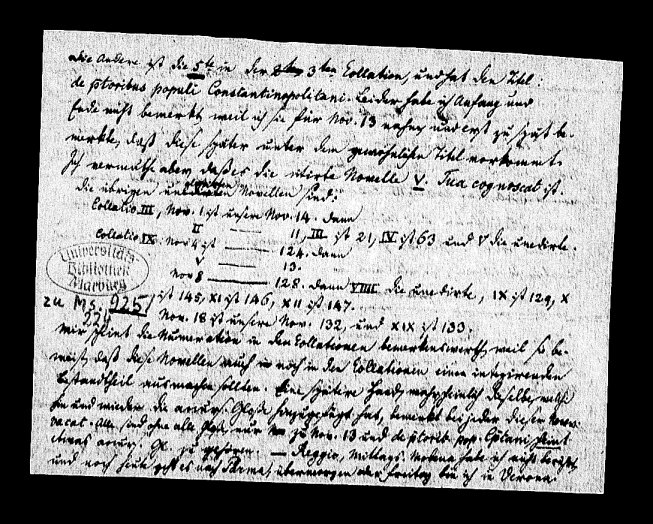 die Andere ist die 5te in der 3ten Collation, und hat den Titel:
de ptoribus populi Constantinopolitani. Leider habe ich Anfang und
Ende nicht bemerkt, weil ich sie für Nov. 13 nahm, und erst zu spät be-
merkte, daß diese später unter dem gewöhnlichen Titel vorkommt.
Ich vermuthe aber, daß es die citirte Novelle V. Tua cognoscat ist.
die übrigen Novellen sind:
Collatio III, Nov. 1 ist unsere Nov. 14. dann
II ___ 11, III ist 21, IV ist 63 und V die unedirte.
Collatio IX: Nov. 4 ist ___ 124. dann
V ___ 13.
Nov 8 ___ 128. dann VIIII die unedirte, IX ist 129, X
Universitäts
Bibliothek
Marburg
zu Ms. 925/
224
ist 145, XI ist 146, XII ist 147.
Nov. 18 ist unsere Nov. 132, und XIX ist 133.
Mir scheint die Numeration in den Collationen bemerkenswerth, weil sie be-
weist, daß diese Novellen auch noch in den Collationen einen integrirenden
Bestandtheil ausmachen sollten. Eine spätere Hand, wahrscheinlich dieselbe, welche
hie und wieder die Glosse hinzugefügt hat, bemerkt bei jeder dieser Novellen
vacat. Alle sind ohne alle Glosse, nur zu Nov. 13 und de ptorib. pop. Cptani scheint
etwas Gl. zu gehören. — Reggio, Mittags. Modena habe ich
und noch heute geht es nach Parma, übermorgen oder Freitag bin ich in Verona.